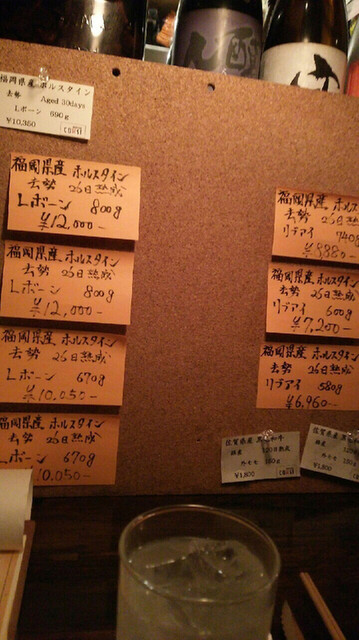 福岡県産 ホルスタイン
去勢 Aged 30days
Lボーン 690g
¥10,350
福岡県産 ホルスタイン
去勢 26日熟成
Lボーン 800g
¥12,000-
福岡県産 ホルスタイン
去勢 26日熟成
Lボーン 800g
¥12,000-
福岡県産 ホルスタイン
去勢 26日熟成
Lボーン 670g
¥10.050-
福岡県産 ホルスタイン
去勢 26日熟成
Lボーン 670g
10.050-
福岡県産 ホルスタイン
去勢 26日熟成
リブアイ 740g
¥8,880-
福岡県産 ホルスタイン
去勢 26日熟成
リブアイ 600g
¥7,200-
福岡県産 ホルスタイン
去勢 26日熟成
リブアイ 580g
¥6,960-
佐賀県産 黒毛和牛
120日熟成
外モモ 150g
¥1,800
佐賀県産
¥1,800